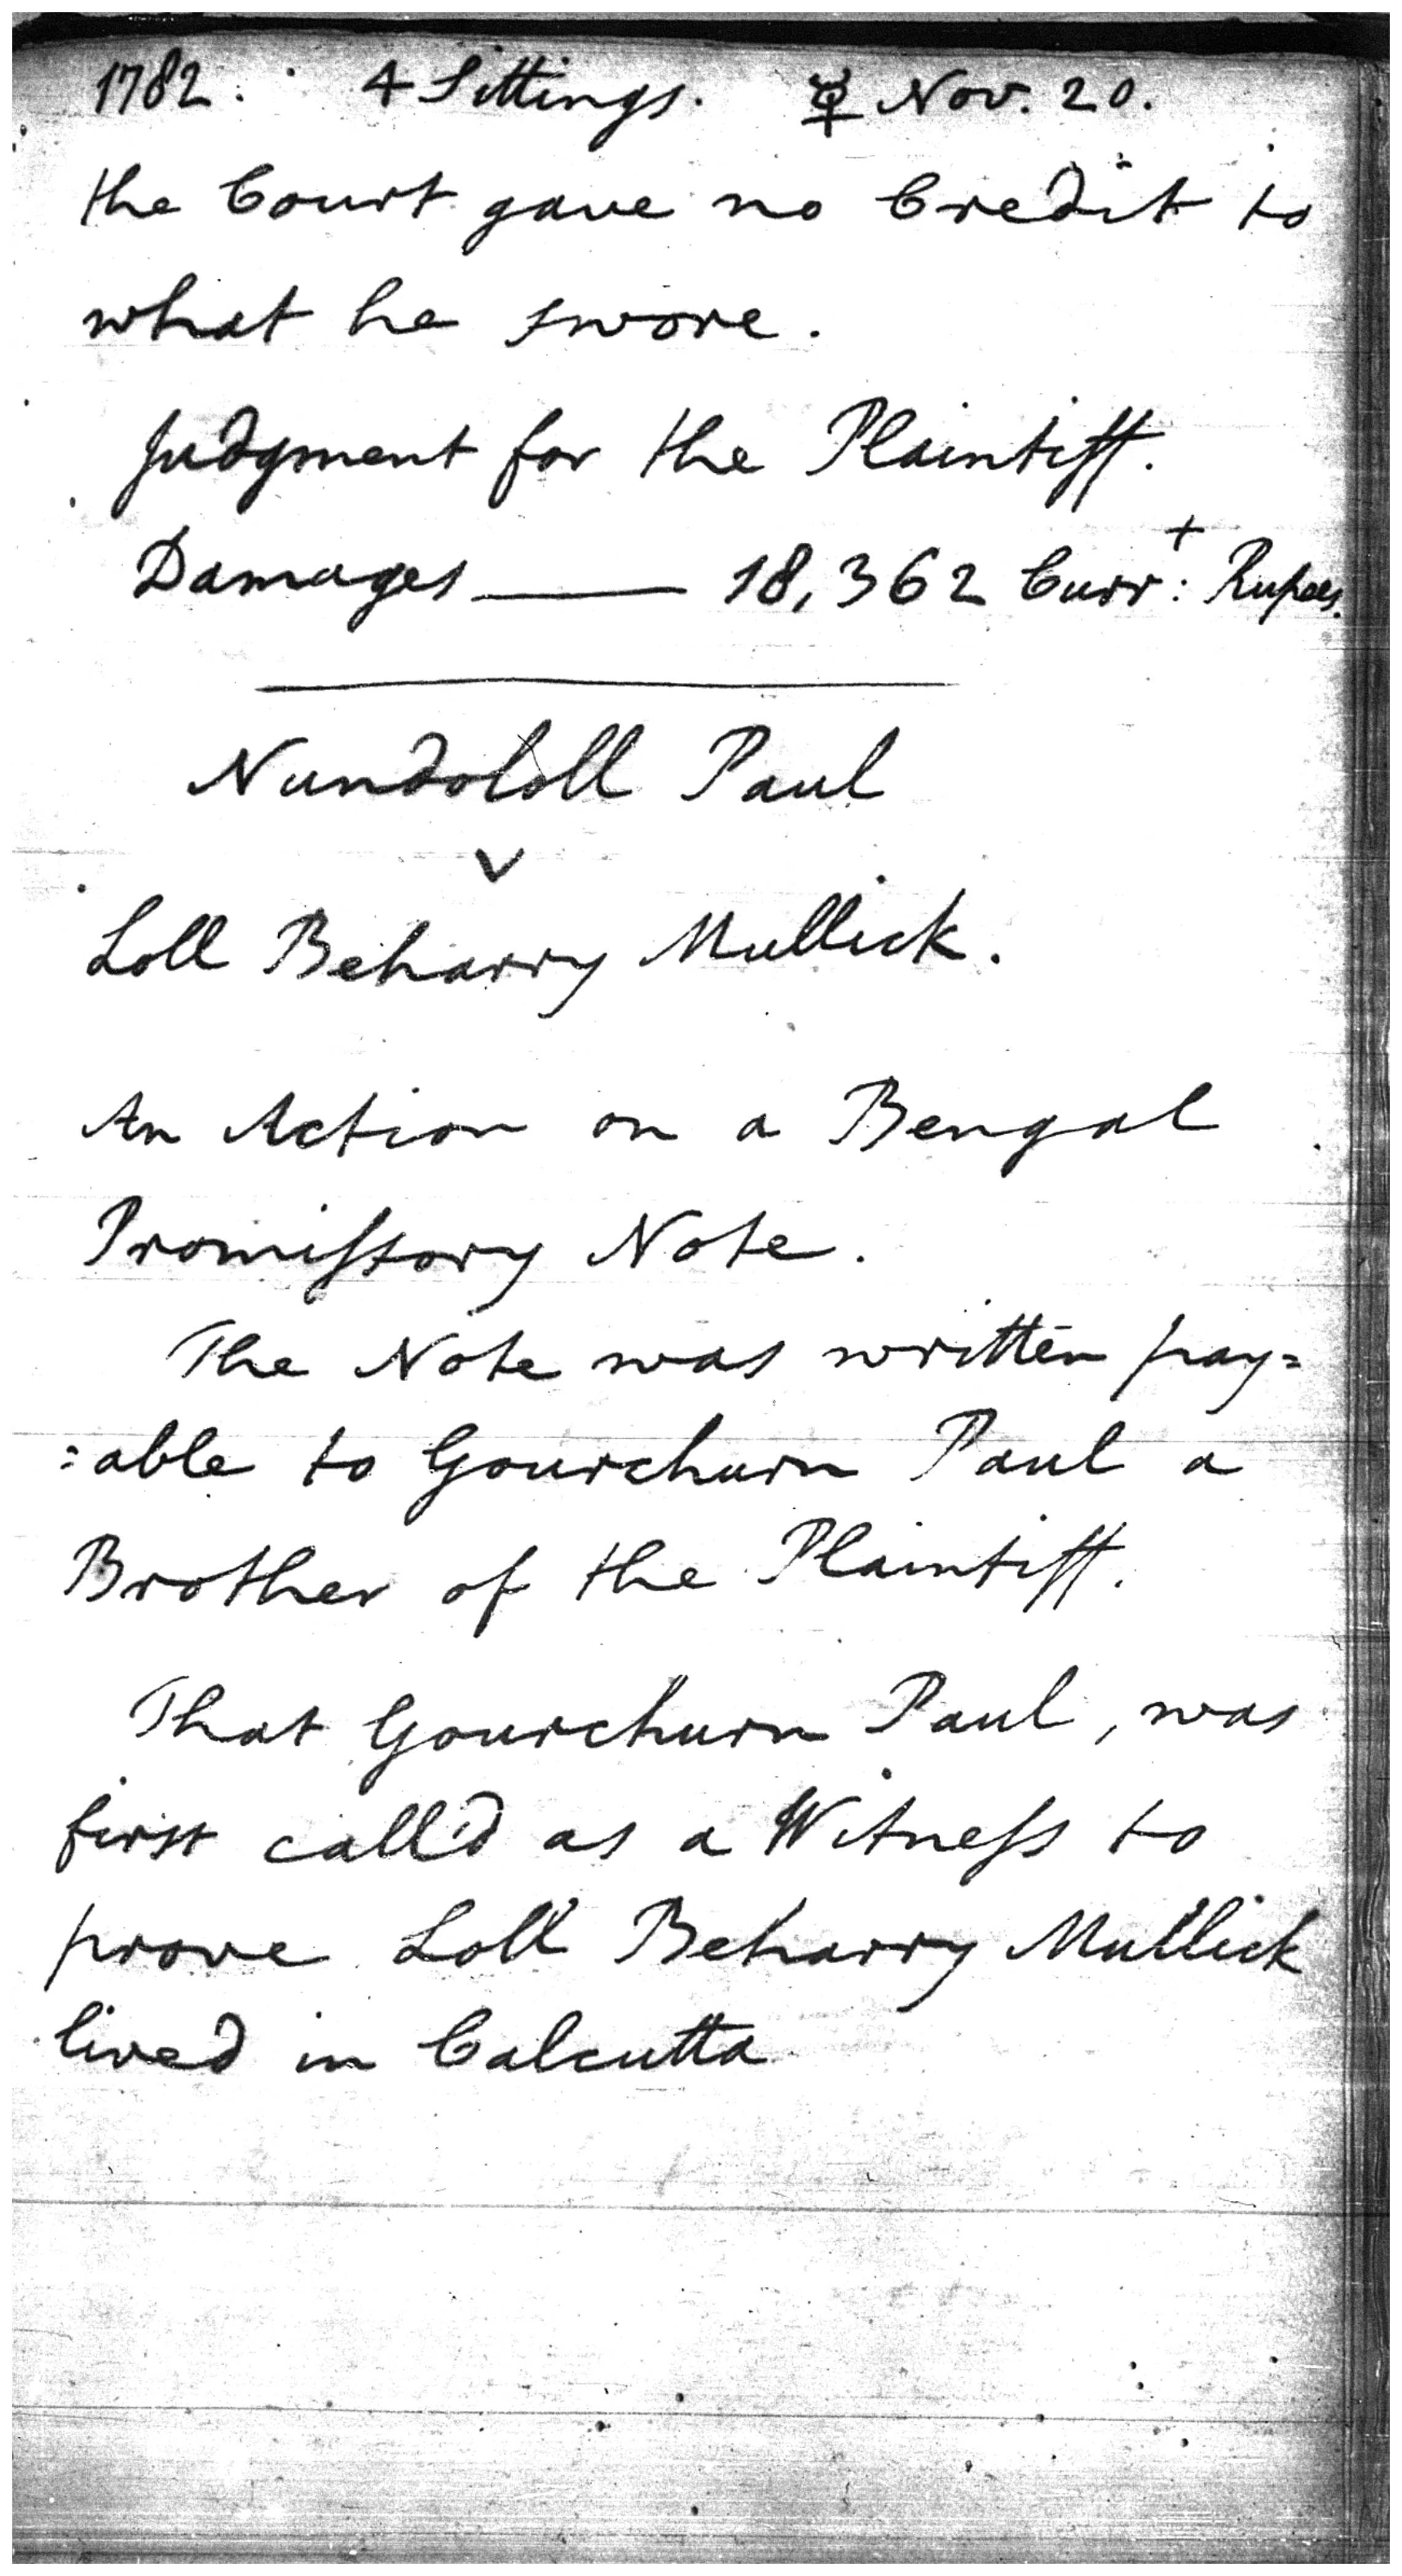 1782. 4 Sittings. ☿ Nov. 20.
the Court gave no Credit to
what he swore.
Judgment for the Plaintiff.
Damages — 18,362 Curr:t Rupees.
Nundololl Paul
v
Loll Beharry Mullick.
An Action on a Bengal
Promiſsory Note.
The Note was written pay=
=able to Gourchurn Paul a
Brother of the Plaintiff.
That Gourchurn Paul, was
first call'd as a Witneſs to
prove Loll Beharry Mullick
lived in Calcutta